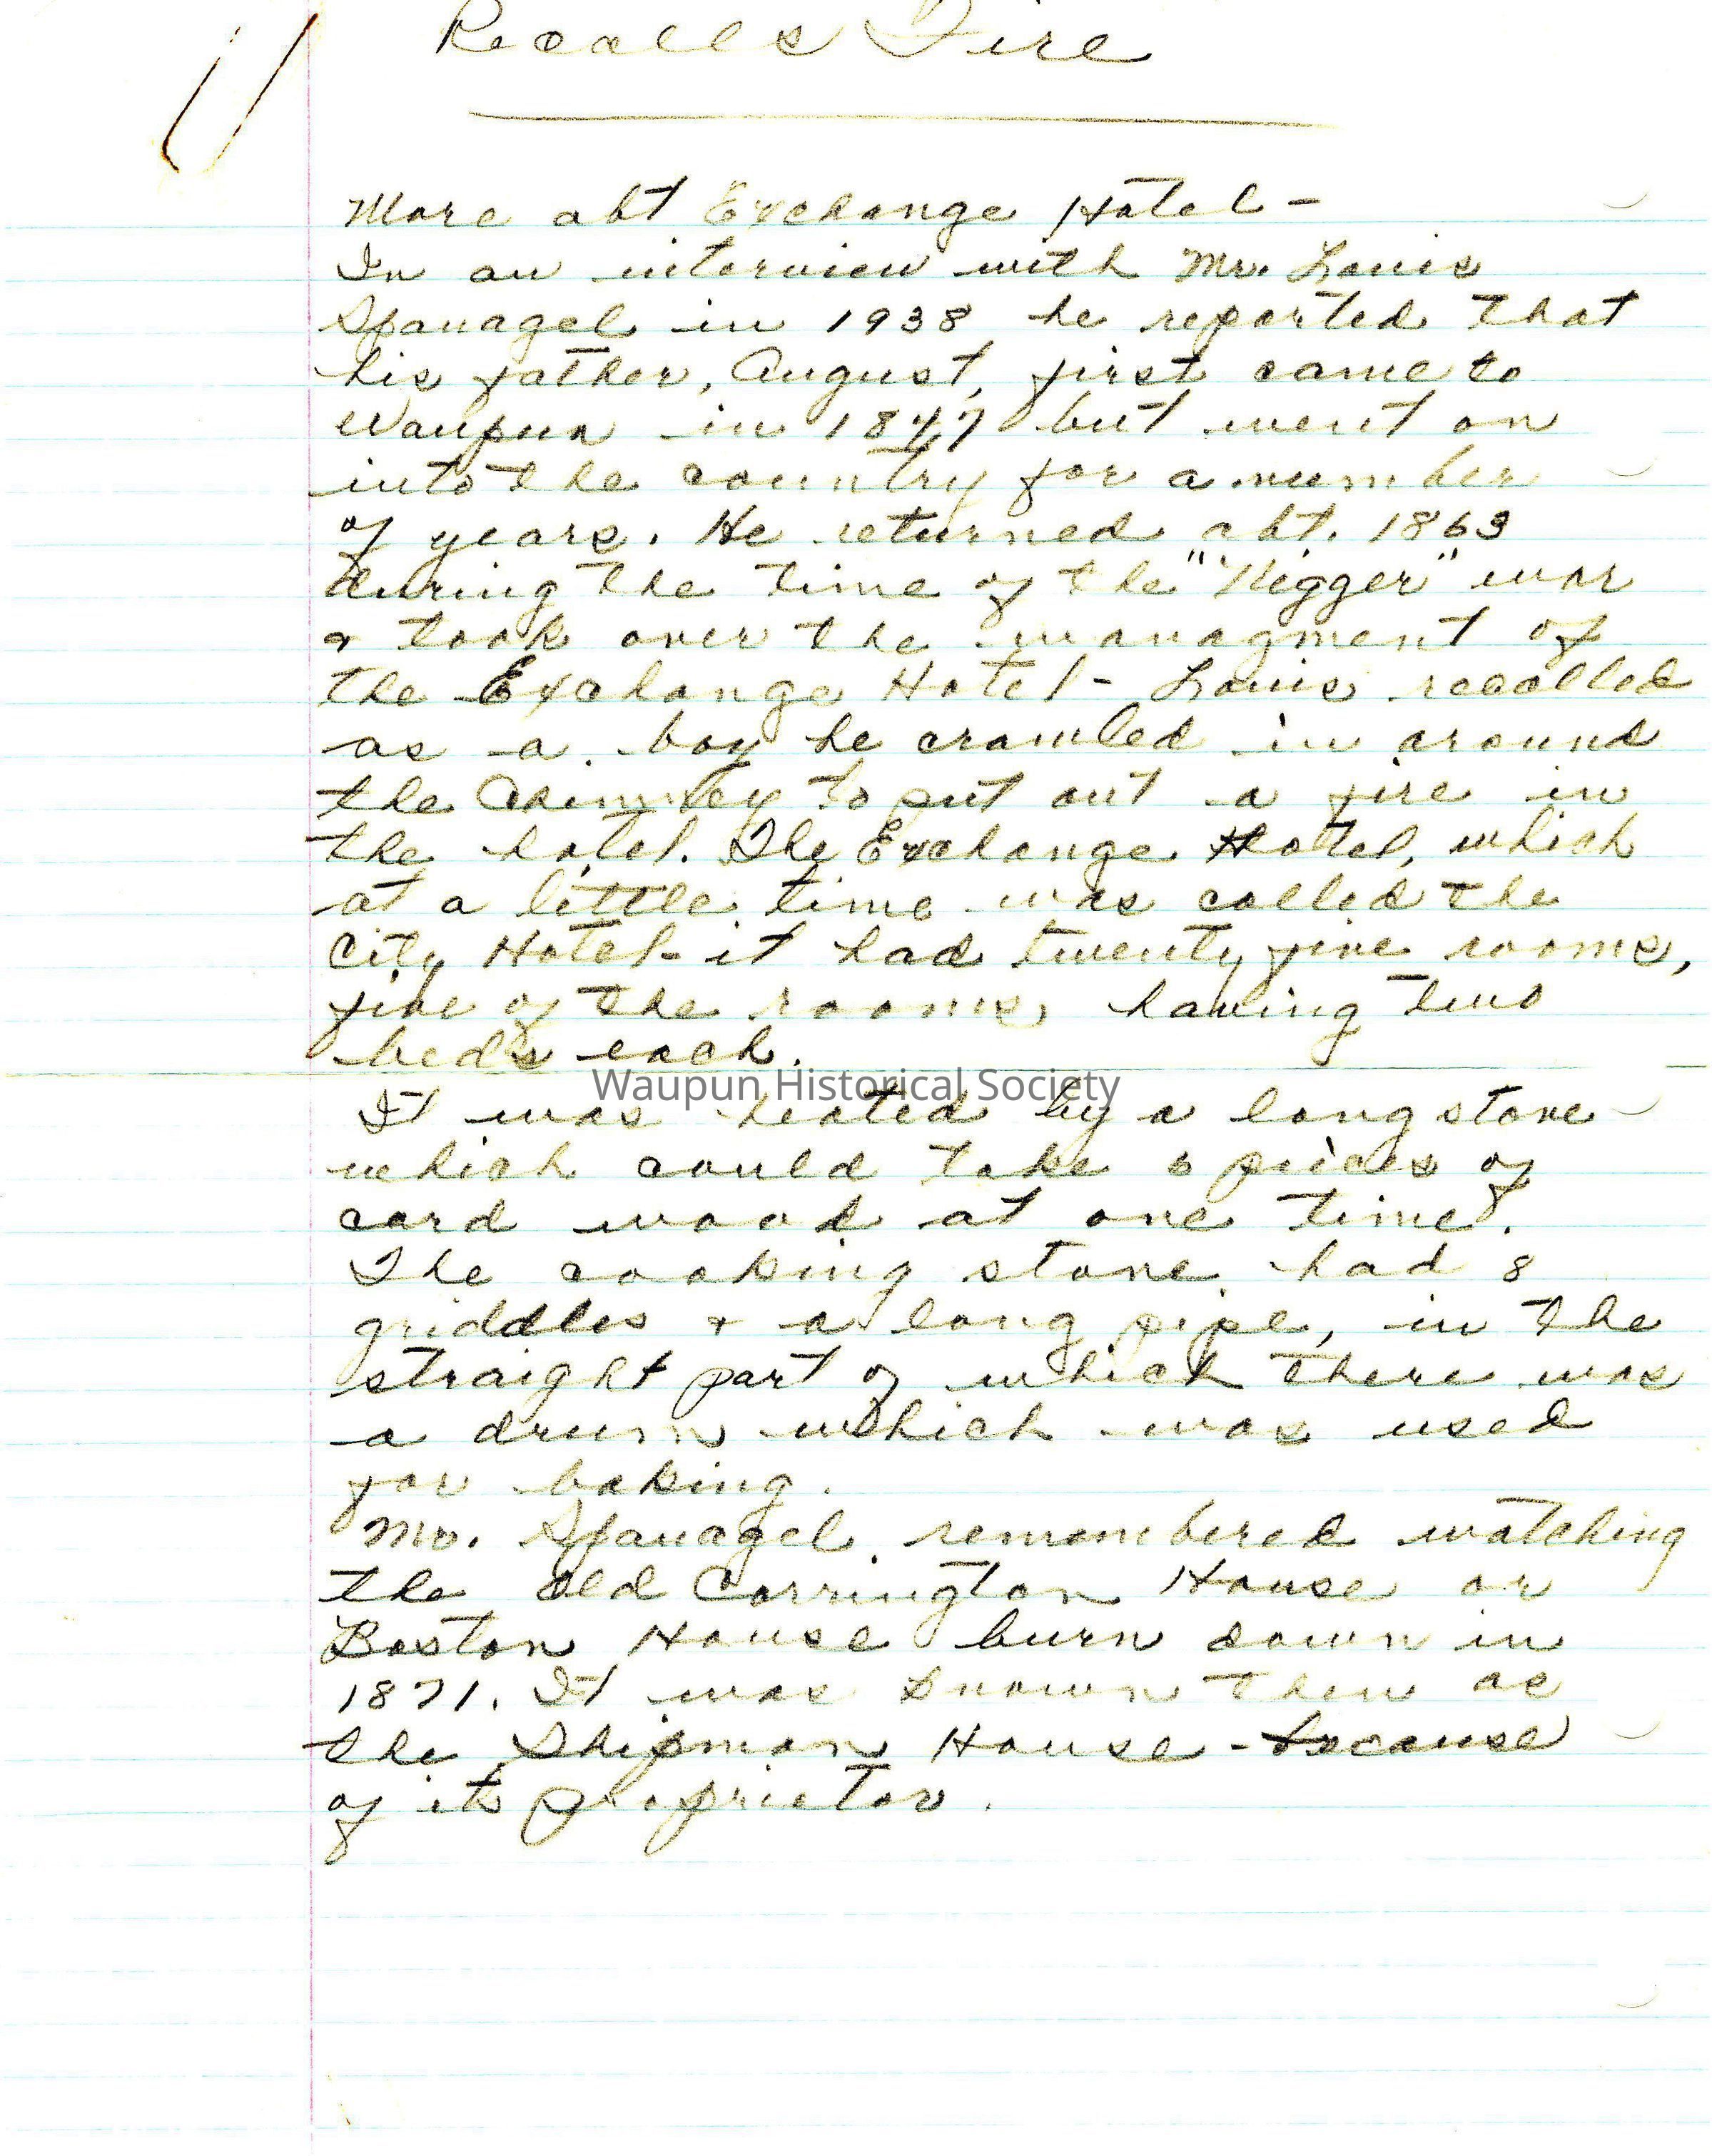 Recalls Fire
More abt Exchange Hotel -
In an interview with Mr. Louis
Spanagel in 1938 he reported that
his father, August, first came to
Waupun in 1847 but went on
into the country for a number
of years. He returned abt. 1863
during the time of the "Nigger" war
& took over the managment of
the Exchange Hotel - Louis recalled
as a boy he crawled in around
the Chimney to put out a fire in
the hotel. The Exchange Hotel, which
at a little time was called the
City Hotel - it had twenty five rooms,
five of the rooms having two
beds each.
Waupun Historical Society
It was heated by a long stove
which could take 6 pieces of
cord wood at one time.
The cooking stove had 8
griddles & a long pipe, in the
straight part of which there was
a drum which was used
for baking.
Mr. Spanagel remembered watching
the old Carrington House or
Boston House burn down in
1871. It was known then as
the Shipman House - because
of its proprietor.